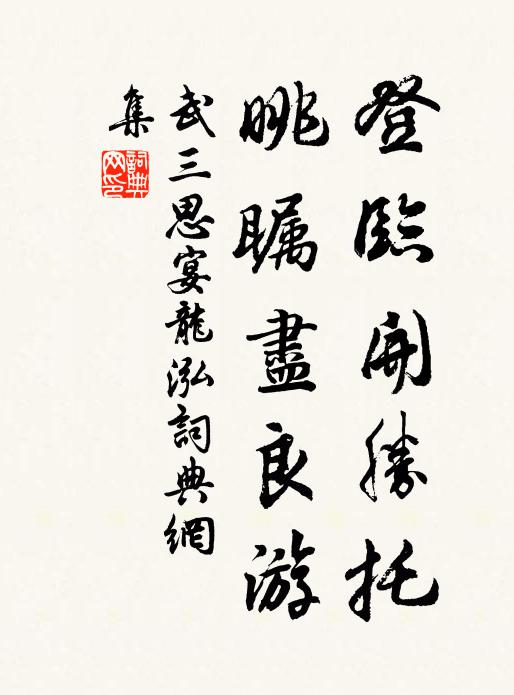 登臨開勝托
眺瞩盡良游
武三思宴龍泓詞典網
集
詞典
网印